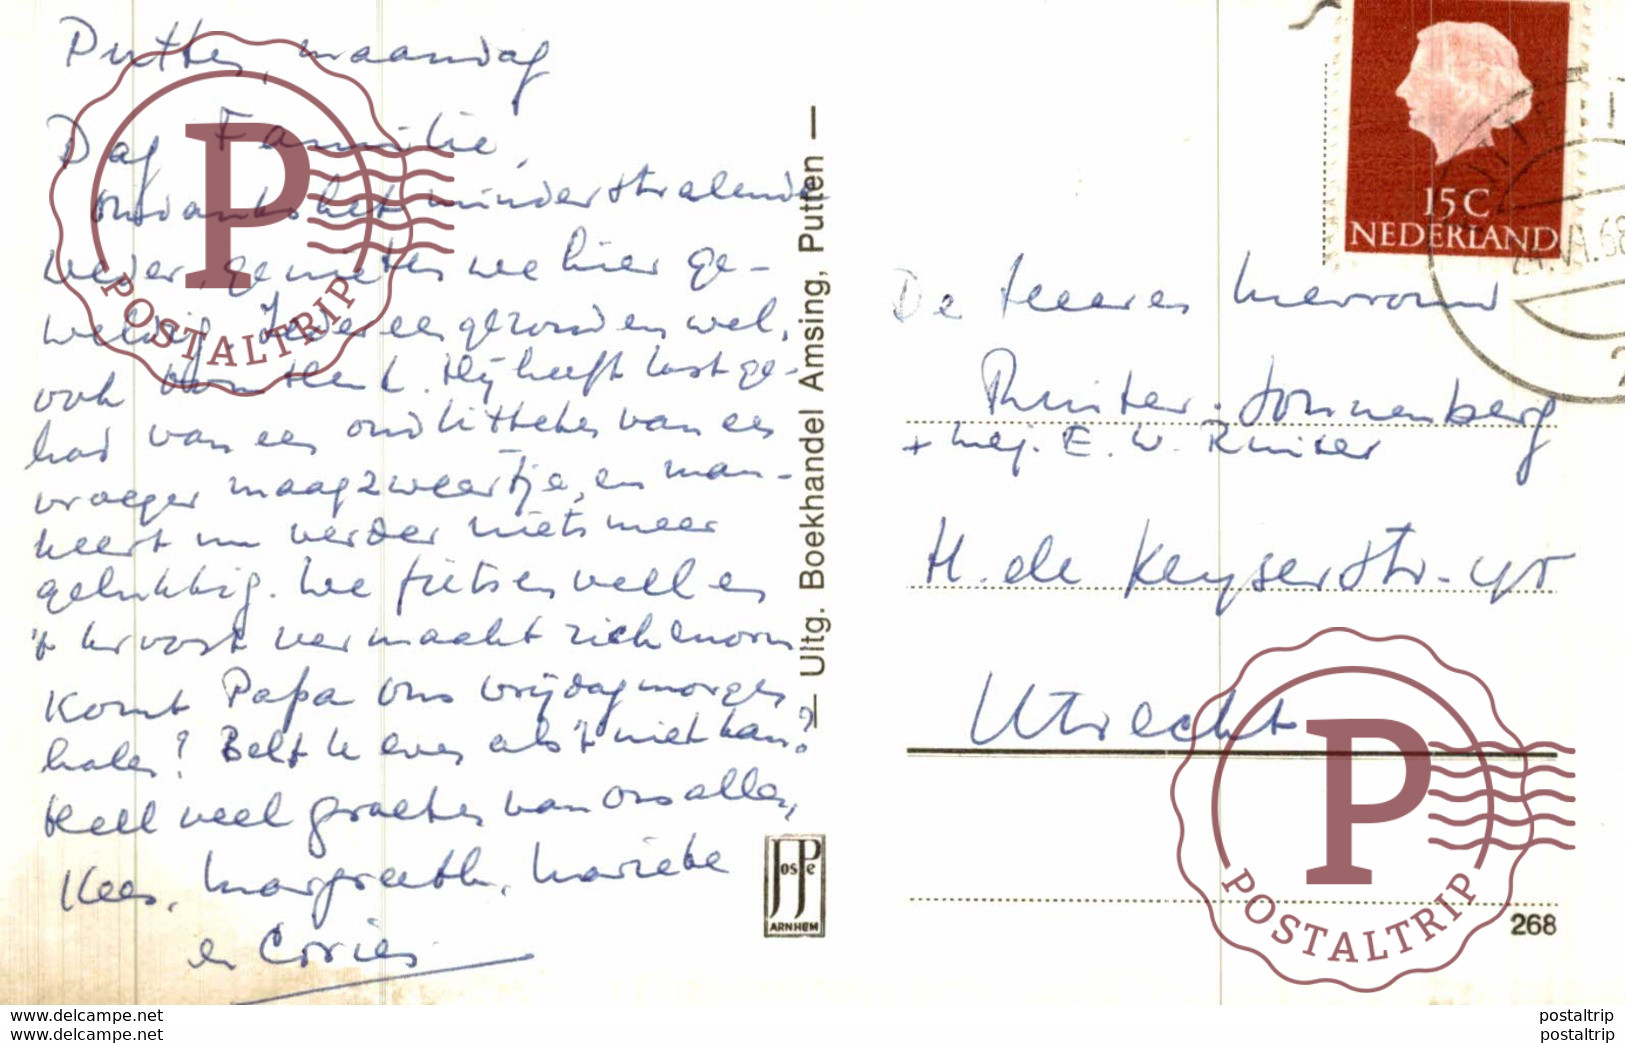 Putten, maandag
Dag Familie,
ondanks het minder stralende
weder, genieten we hier ge-
weldig. Ieder een gezond en wel,
ook Henk. Hij heeft last ge-
had van een oud litteken van een
vroeger maagzweertje, en man-
keert nu verder niets meer
gelukkig. We fietsen veel en
't kroost vermaakt zich enorm
Komt Papa ons vrijdagmorgen
halen? Belt U even als 't niet kan?
Heel veel groeten van ons allen,
Kees, Margreeth, Marieke
en Corrien
— Uitg. Boekhandel Amsing, Putten —
JosPe
ARNHEM
15 C
NEDERLAND
De Heer en Mevrouw
Ruiter-Sonnenberg
+ Mej. E. W. Ruiter
H. de Keyserstr.
Utrecht
268
P
POSTALTRIP
P
POSTALTRIP
www.delcampe.net
postaltrip
www.delcampe.net
postaltrip